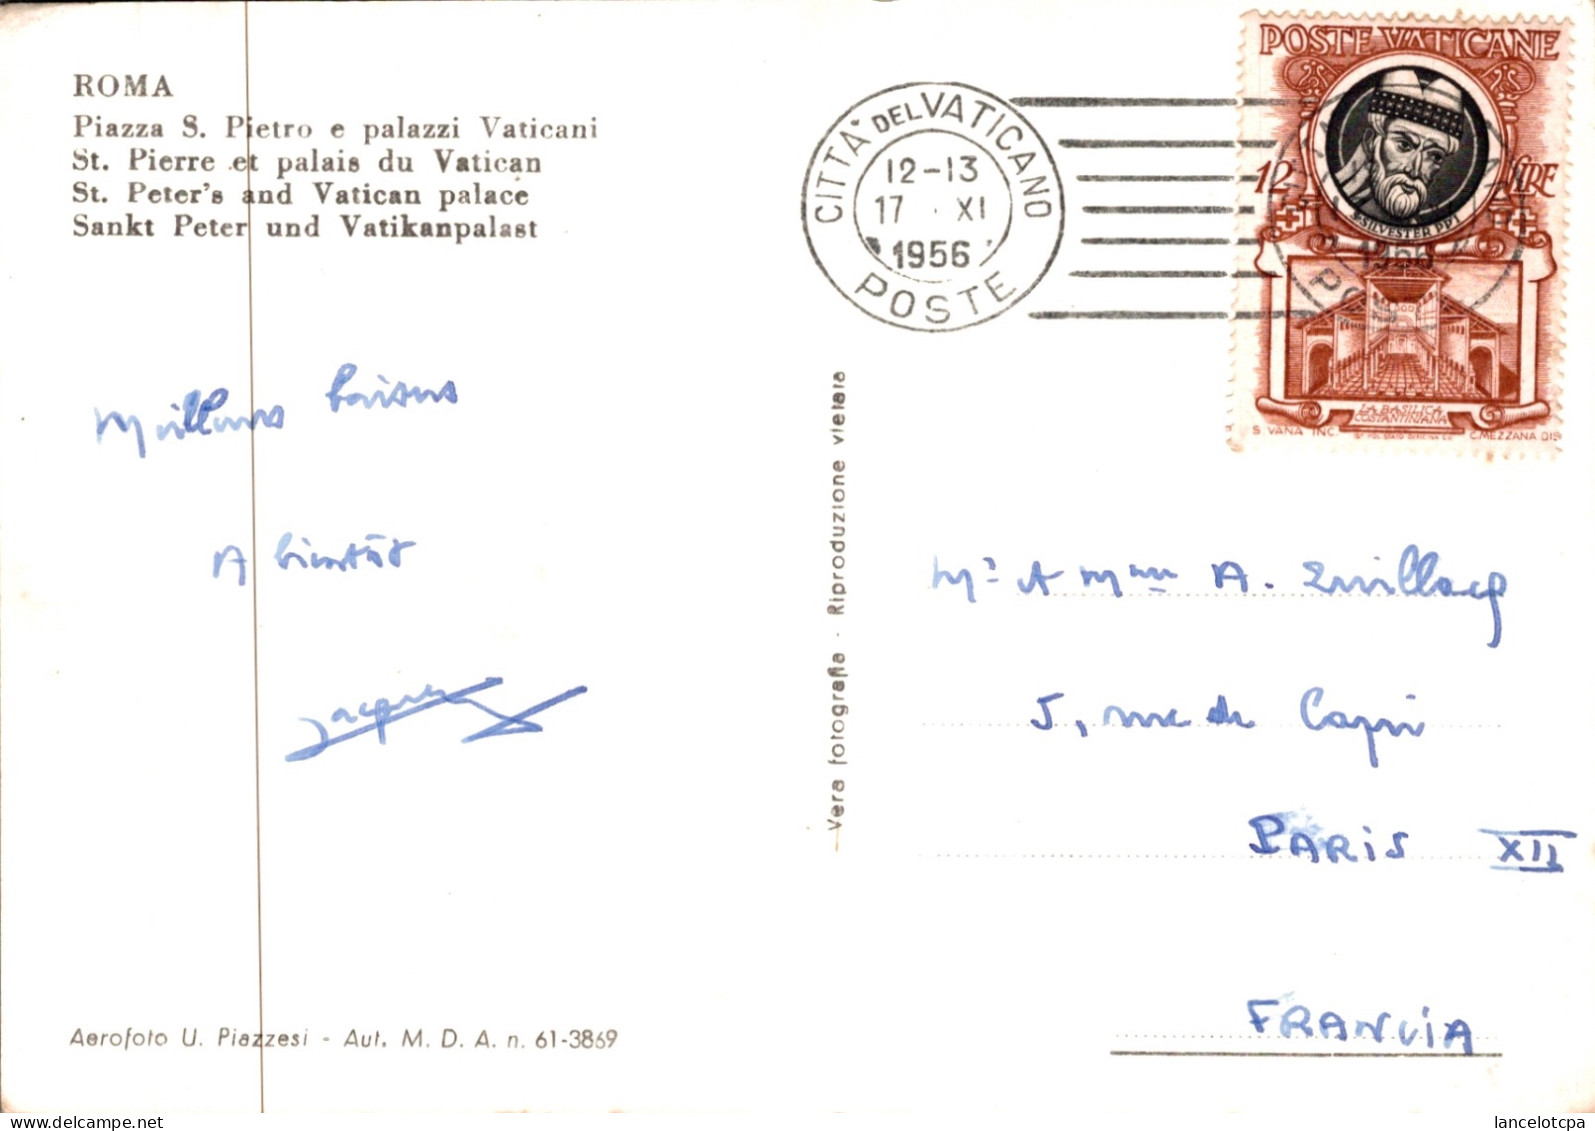 ROMA
Piazza S. Pietro e palazzi Vaticani
St. Pierre et palais du Vatican
St. Peter's and Vatican palace
Sankt Peter und Vatikanpalast
CITTA' DEL VATICANO
12-13
17 . XI
1956
POSTE
POSTE VATICANE
12 LIRE
S. SILVESTER PP. I
LA BASILICA
COSTANTINIANA
S. VANA INC.
C. MEZZANA DIS.
Meilleurs baisers
A bientôt
Jacques
Vera fotografia - Riproduzione vietata
Mr et Mme A.
5, rue de Capri
PARIS XII
FRANCIA
Aerofoto U. Piazzesi - Aut. M. D. A. n. 61-3869
lancelotcpa